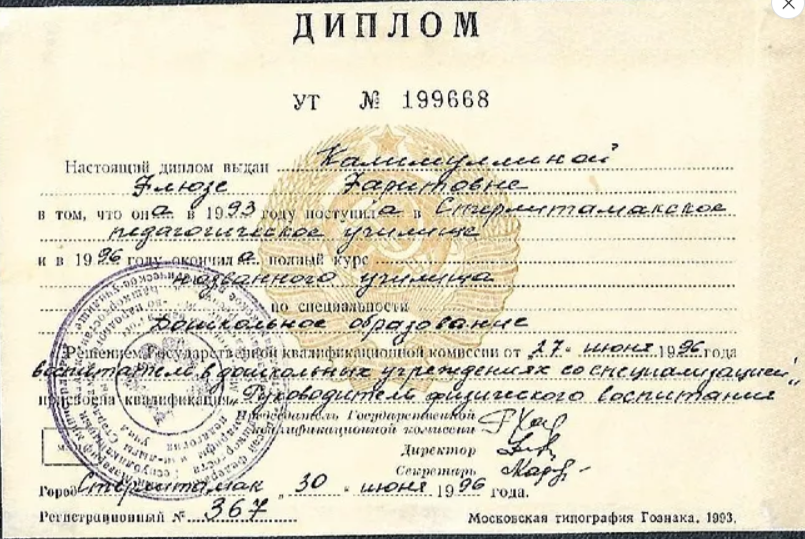 ДИПЛОМ
УТ № 199668
Настоящий диплом выдан Калимуллиной
Элюзе Фаритовне
в том, что она в 1993 году поступила в Стерлитамакское
педагогическое училище
и в 1996 году окончила полный курс
названного училища
по специальности
Дошкольное образование
Решением Государственной квалификационной комиссии от 27 июня 1996 года
воспитателя в дошкольных учреждениях со специализацией
присвоена квалификация „Руководитель физического воспитания"
Председатель Государственной
квалификационной комиссии
Директор
Секретарь
Город Стерлитамак „30" июня 1996 года.
Регистрационный № 367
Московская типография Гознака. 1993.